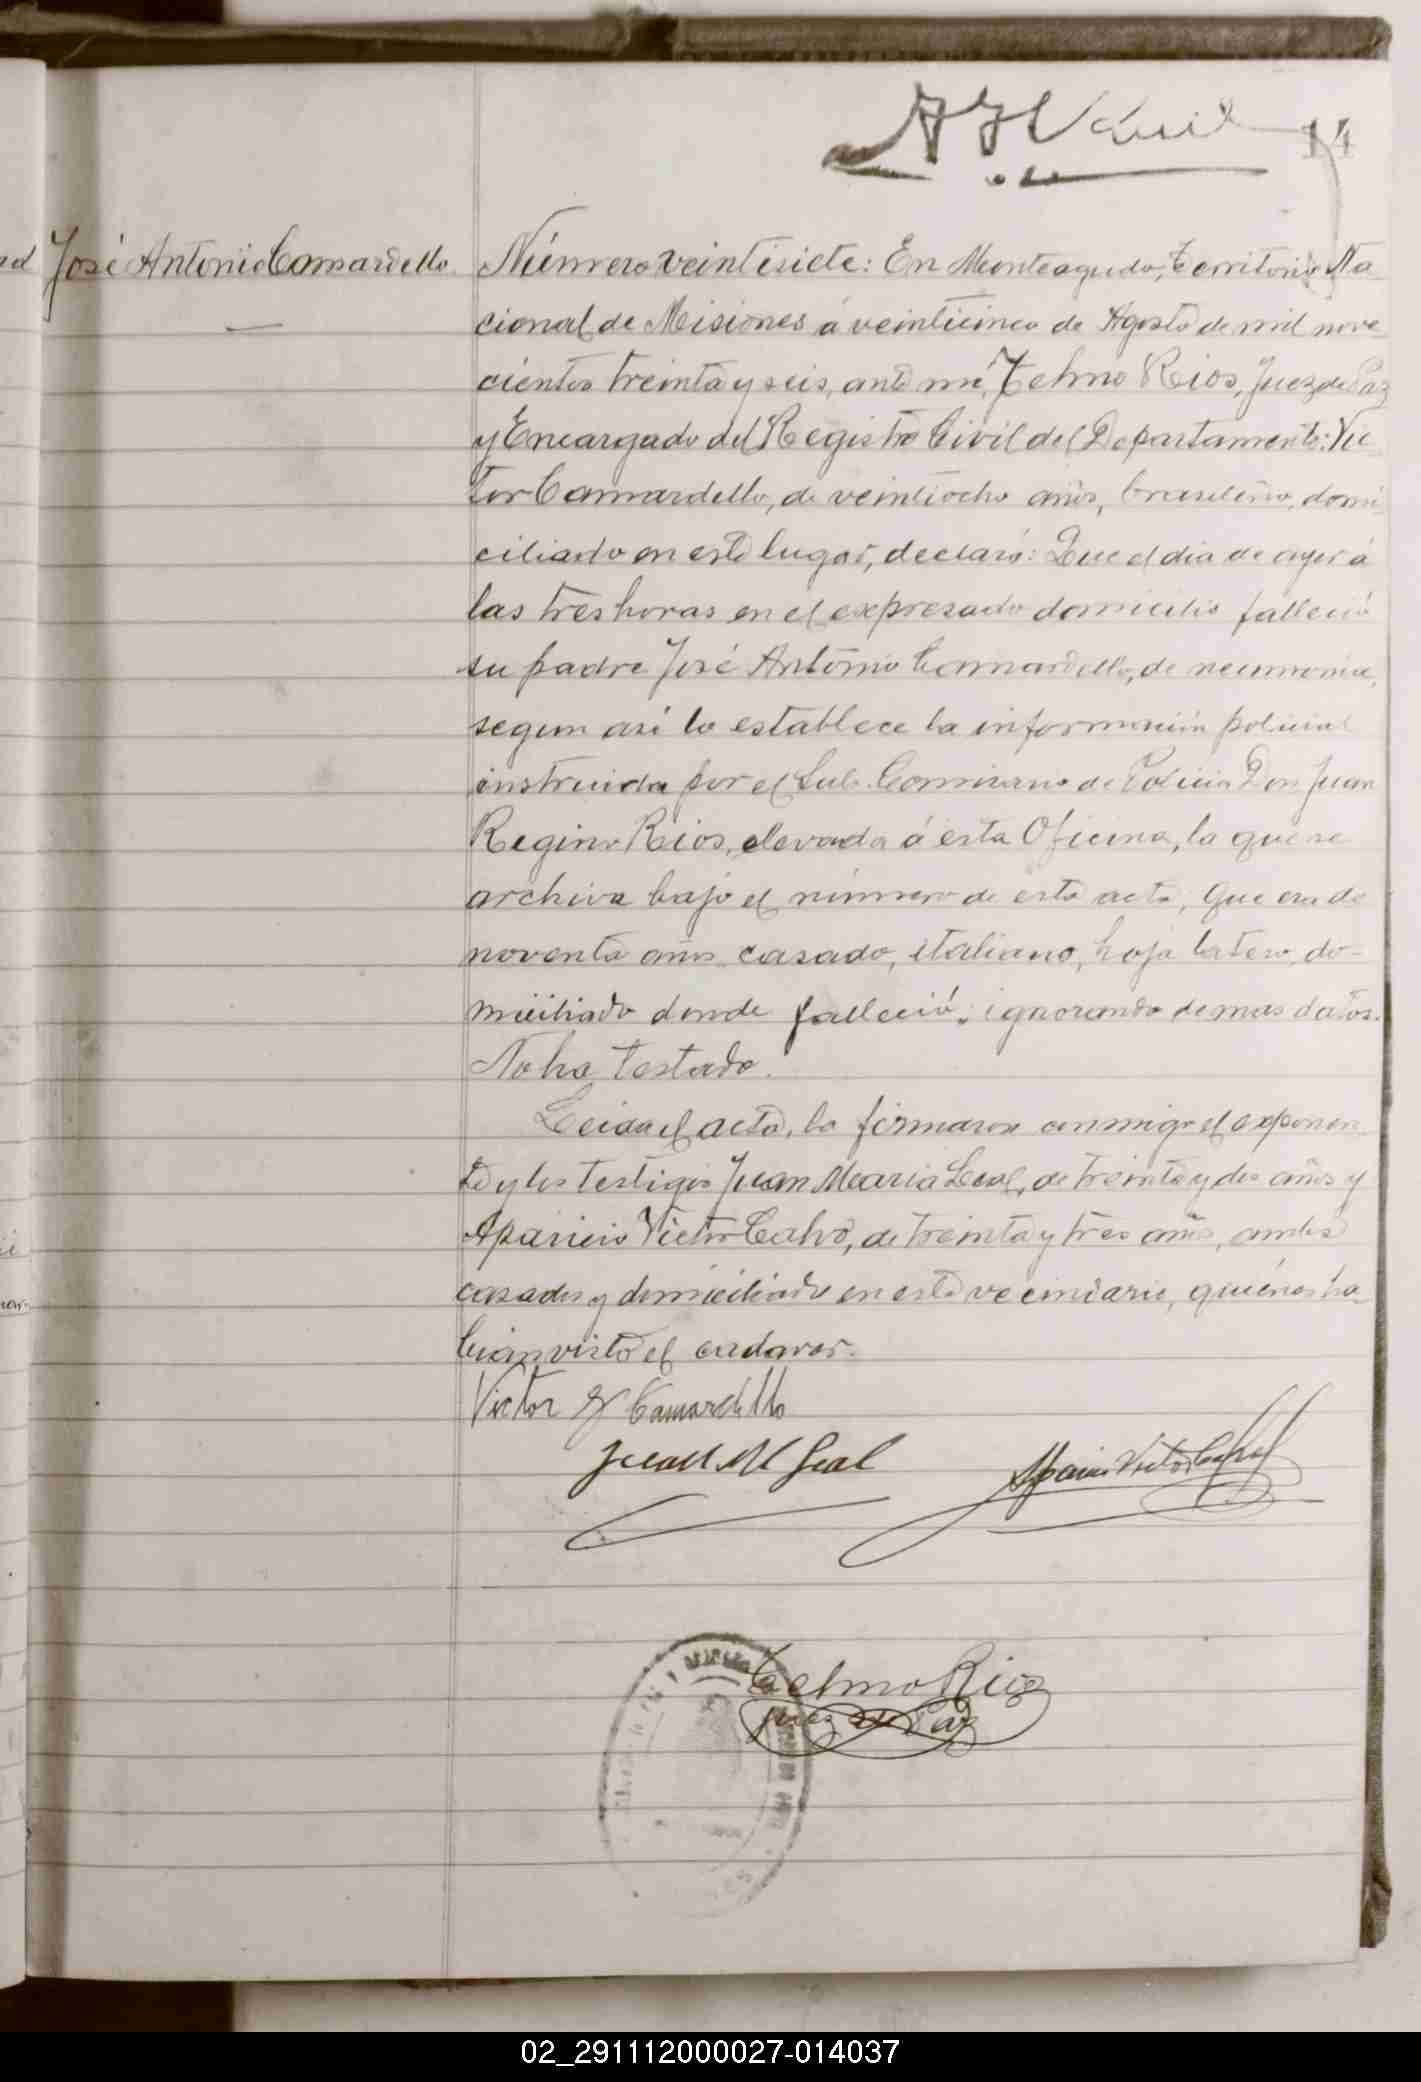 14
José Antonio Camardello
Número veintisiete: En Monteagudo, Territorio Na-
cional de Misiones á veinticinco de Agosto de mil nove-
cientos treinta y seis, ante mí, Telmo Rios, Juez de Paz
y Encargado del Registro Civil del Departamento: Vic-
tor Camardello, de veintiocho años, brasileño, domi-
ciliado en este lugar, declaró: Que el dia de ayer á
las tres horas en el expresado domicilio falleció
su padre José Antonio Camardello, de neumonia,
segun asi lo establece la información policial
instruida por el Sub-Comisario de Policia Don Juan
Regino Rios, elevada á esta Oficina, la que se
archiva bajo el número de esta acta; Que era de
noventa años casado, italiano, hoja latero, do-
miciliado donde falleció; ignorando demas datos.
No ha testado.
Leida el acta, la firmaron conmigo el exponen-
te y los testigos Juan Maria Leal, de treinta y dos años y
Aparicio Victor Calvo, de treinta y tres años, ambos
casados y domiciliado en este vecindario, quiénes ha-
bian visto el cadaver.
Victor Camardello
Juan M Leal
Telmo Rios
Juez de Paz
02_291112000027-014037